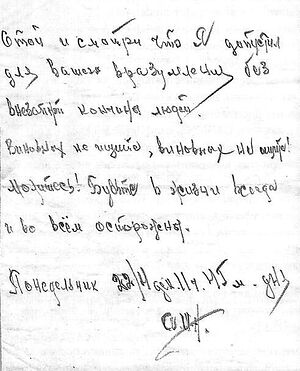 Стой и смотри что Я допустил
для Вашего вразумления без
внезапной кончины людей.
Виновных не ищите, виновных не ищите!
Молитесь! Будьте в жизни всегда
и во всём осторожны.
Понедельник 11ч. 45 м. дня